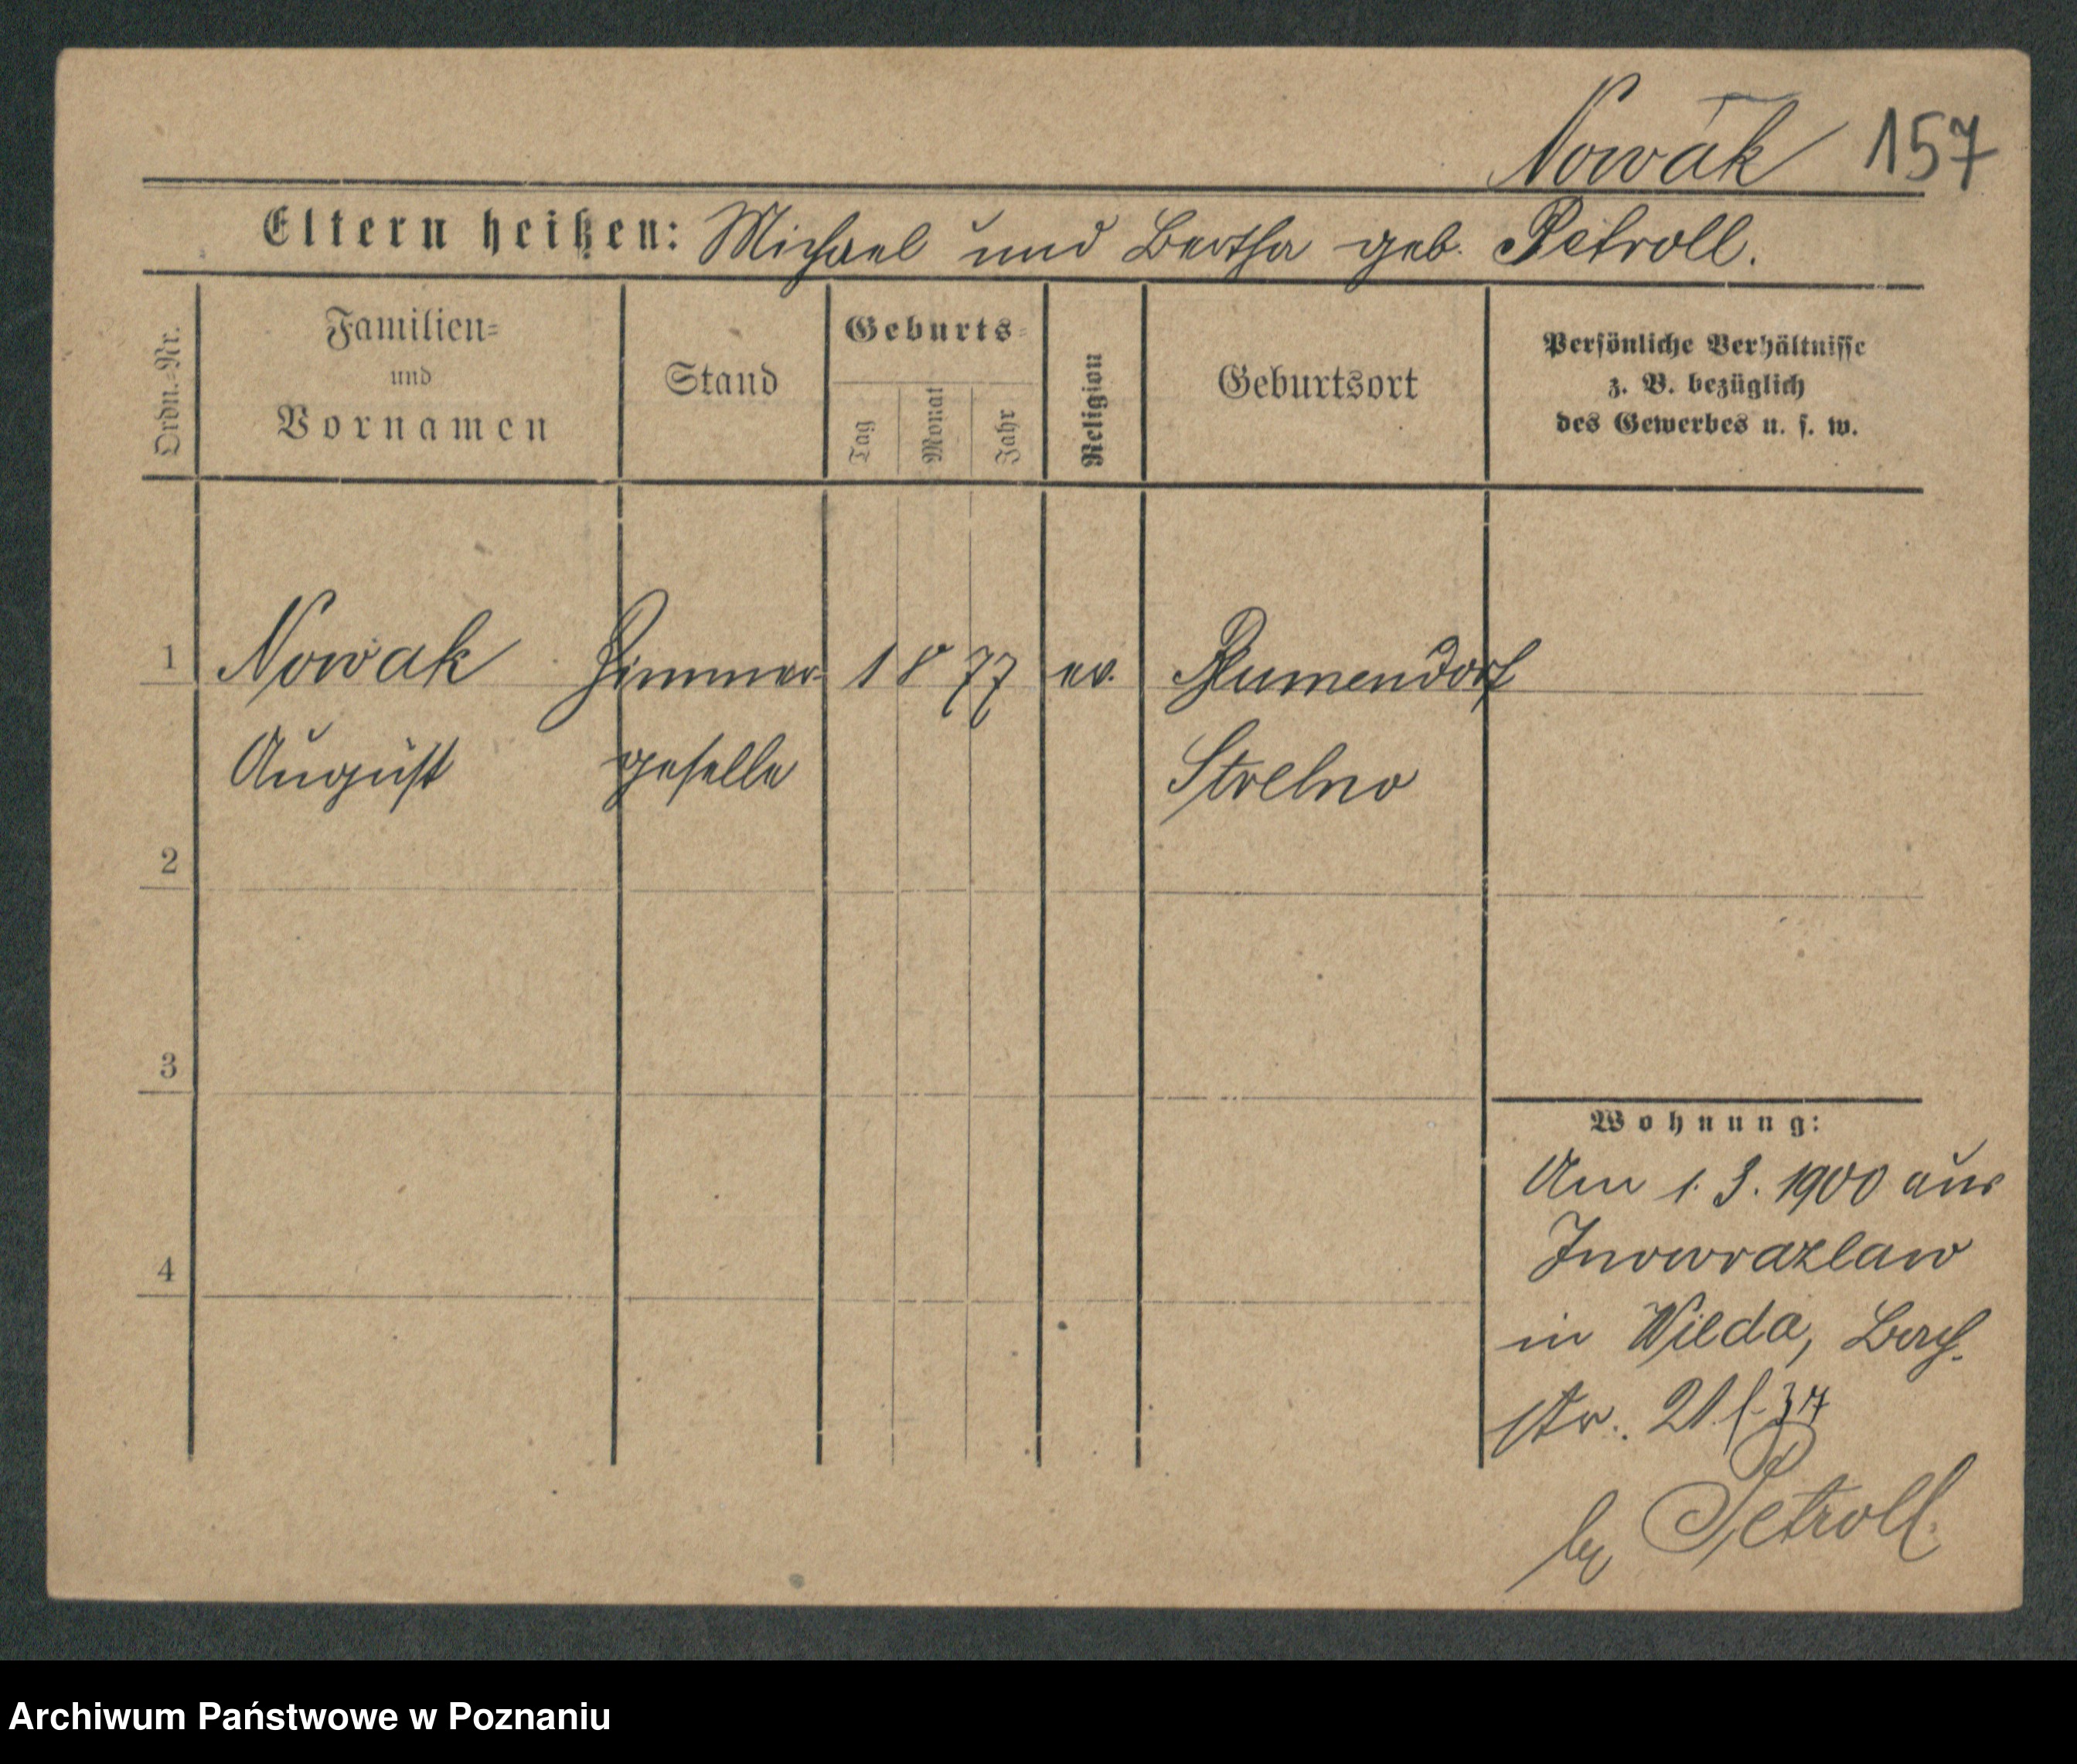 Nowak 157
Eltern heißen: Michael und Bertha geb. Petroll.
Ordn.-Nr.
Familien-
und
Vornamen
Stand
Geburts-
Tag
Monat
Jahr
Religion
Geburtsort
Persönliche Verhältnisse
z. B. bezüglich
des Gewerbes u. s. w.
1 Nowak Zimmer- 1 8 77 ev. Blumendorf
August geselle Strelno
2
3
4
Wohnung:
Am 1. 3. 1900 aus
Inowrazlaw
in Wilda, Bach-
str. 21
Petroll.
Archiwum Państwowe w Poznaniu